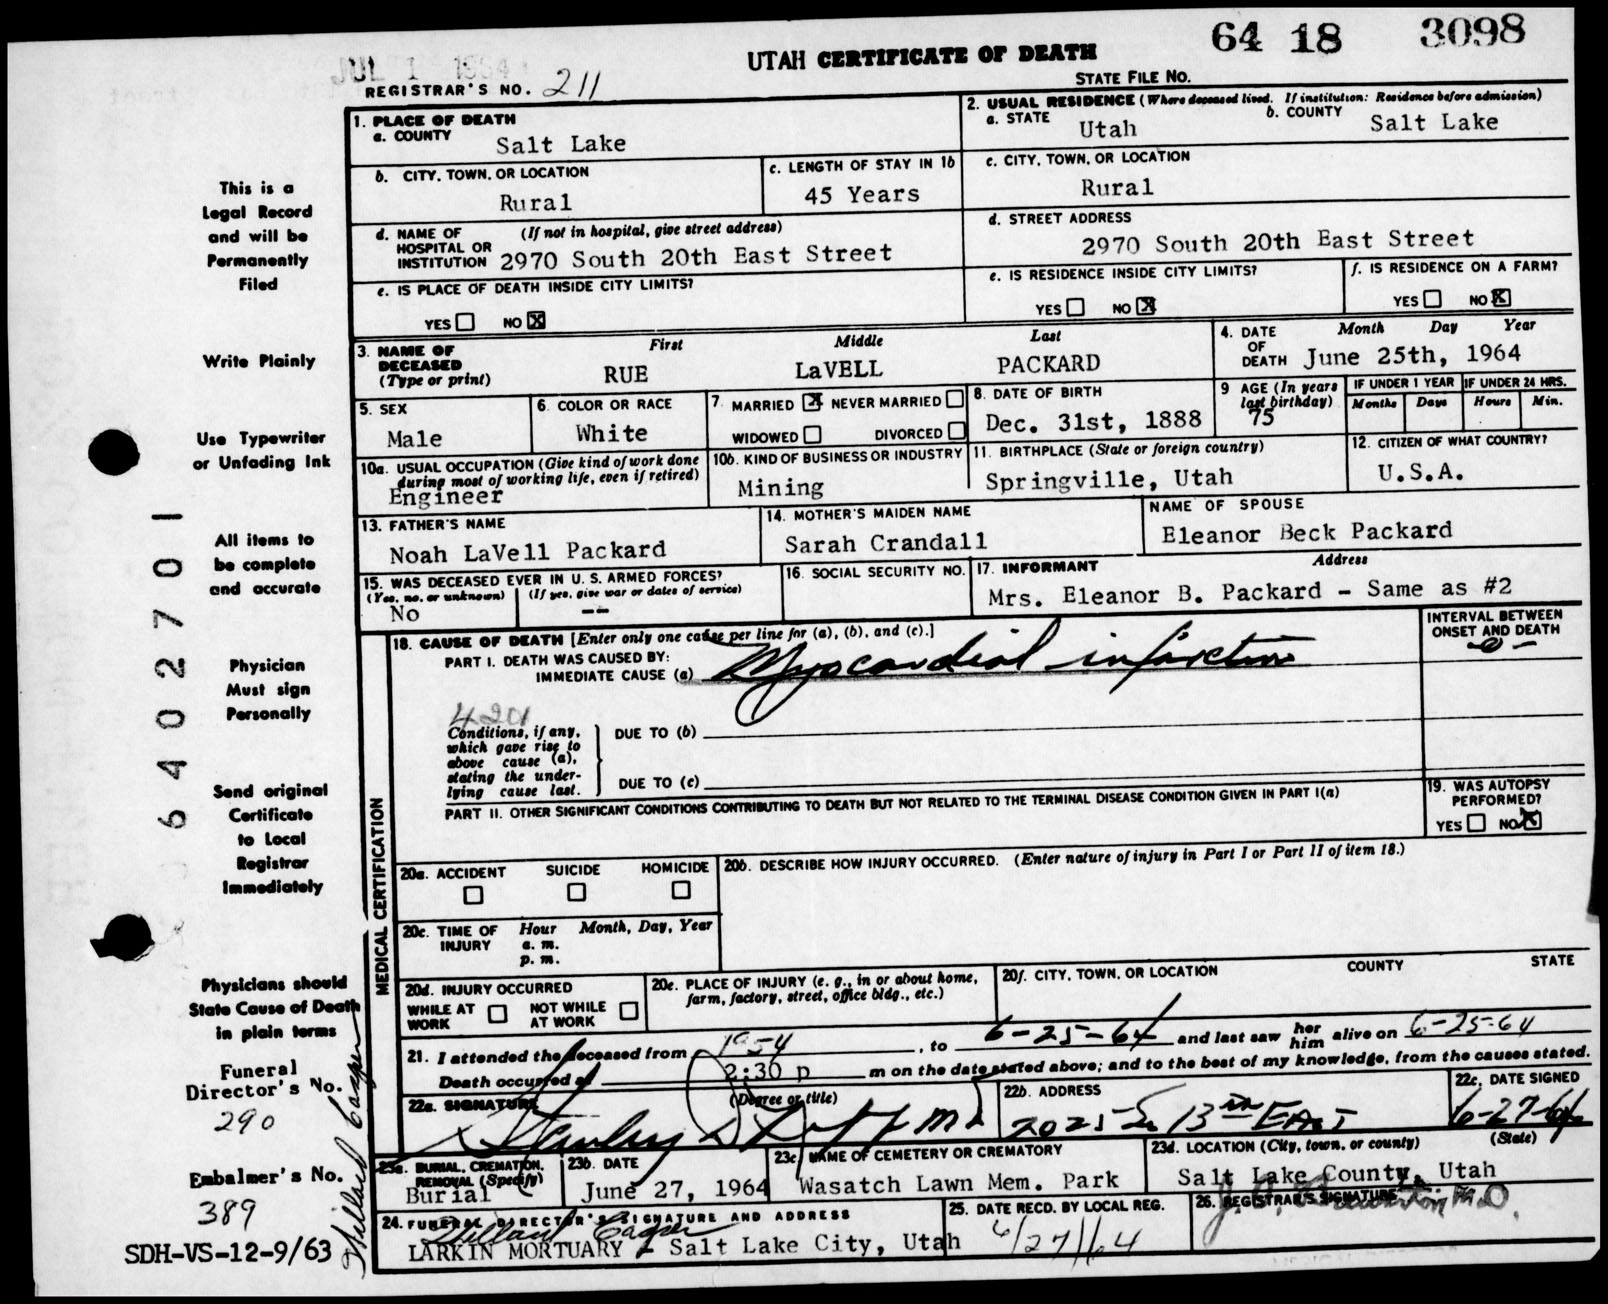 JUL 1 1964
64 18 3098
UTAH CERTIFICATE OF DEATH
REGISTRAR'S NO. 211
STATE FILE NO.
1. PLACE OF DEATH
a. COUNTY
Salt Lake
2. USUAL RESIDENCE (Where deceased lived. If institution: Residence before admission)
a. STATE
Utah
b. COUNTY
Salt Lake
b. CITY, TOWN, OR LOCATION
Rural
c. LENGTH OF STAY IN 1b
45 Years
c. CITY, TOWN, OR LOCATION
Rural
d. NAME OF HOSPITAL OR INSTITUTION (If not in hospital, give street address)
2970 South 20th East Street
d. STREET ADDRESS
2970 South 20th East Street
e. IS PLACE OF DEATH INSIDE CITY LIMITS?
YES NO X
e. IS RESIDENCE INSIDE CITY LIMITS?
YES NO X
f. IS RESIDENCE ON A FARM?
YES NO X
3. NAME OF DECEASED (Type or print)
First Middle Last
RUE LaVELL PACKARD
4. DATE OF DEATH Month Day Year
June 25th, 1964
5. SEX
Male
6. COLOR OR RACE
White
7. MARRIED X NEVER MARRIED
WIDOWED DIVORCED
8. DATE OF BIRTH
Dec. 31st, 1888
9 AGE (In years last birthday)
75
IF UNDER 1 YEAR
Months Days
IF UNDER 24 HRS.
Hours Min.
10a. USUAL OCCUPATION (Give kind of work done during most of working life, even if retired)
Engineer
10b. KIND OF BUSINESS OR INDUSTRY
Mining
11. BIRTHPLACE (State or foreign country)
Springville, Utah
12. CITIZEN OF WHAT COUNTRY?
U.S.A.
13. FATHER'S NAME
Noah LaVell Packard
14. MOTHER'S MAIDEN NAME
Sarah Crandall
NAME OF SPOUSE
Eleanor Beck Packard
15. WAS DECEASED EVER IN U. S. ARMED FORCES?
(Yes, no, or unknown) (If yes, give war or dates of service)
No --
16. SOCIAL SECURITY NO.
17. INFORMANT Address
Mrs. Eleanor B. Packard - Same as #2
MEDICAL CERTIFICATION
18. CAUSE OF DEATH [Enter only one cause per line for (a), (b), and (c).]
INTERVAL BETWEEN ONSET AND DEATH
-0-
PART I. DEATH WAS CAUSED BY:
IMMEDIATE CAUSE (a) Myocardial infarction
4201
Conditions, if any, which gave rise to above cause (a), stating the underlying cause last.
DUE TO (b)
DUE TO (c)
PART II. OTHER SIGNIFICANT CONDITIONS CONTRIBUTING TO DEATH BUT NOT RELATED TO THE TERMINAL DISEASE CONDITION GIVEN IN PART I(a)
19. WAS AUTOPSY PERFORMED?
YES NO X
20a. ACCIDENT SUICIDE HOMICIDE
20b. DESCRIBE HOW INJURY OCCURRED. (Enter nature of injury in Part I or Part II of item 18.)
20c. TIME OF INJURY Hour Month, Day, Year
a. m.
p. m.
20d. INJURY OCCURRED
WHILE AT WORK NOT WHILE AT WORK
20e. PLACE OF INJURY (e. g., in or about home, farm, factory, street, office bldg., etc.)
20f. CITY, TOWN, OR LOCATION COUNTY STATE
21. I attended the deceased from 1954, to 6-25-64 and last saw her him alive on 6-25-64
Death occurred at 2:30 p m on the date stated above; and to the best of my knowledge, from the causes stated.
22a. SIGNATURE (Degree or title)
Stanley MD
22b. ADDRESS
2025 So 13th East
22c. DATE SIGNED
6-27-64
23a. BURIAL, CREMATION, REMOVAL (Specify)
Burial
23b. DATE
June 27, 1964
23c NAME OF CEMETERY OR CREMATORY
Wasatch Lawn Mem. Park
23d. LOCATION (City, town, or county) (State)
Salt Lake County, Utah
24. FUNERAL DIRECTOR'S SIGNATURE AND ADDRESS
Willard Casper
LARKIN MORTUARY - Salt Lake City, Utah
25. DATE RECD. BY LOCAL REG.
6/27/64
26. REGISTRAR'S SIGNATURE
M.D.
This is a
Legal Record
and will be
Permanently
Filed
Write Plainly
Use Typewriter
or Unfading Ink
All items to
be complete
and accurate
Physician
Must sign
Personally
Send original
Certificate
to Local
Registrar
Immediately
Physicians should
State Cause of Death
in plain terms
Funeral
Director's No.
290
Embalmer's No.
389
Willard Casper
SDH-VS-12-9/63
6402701